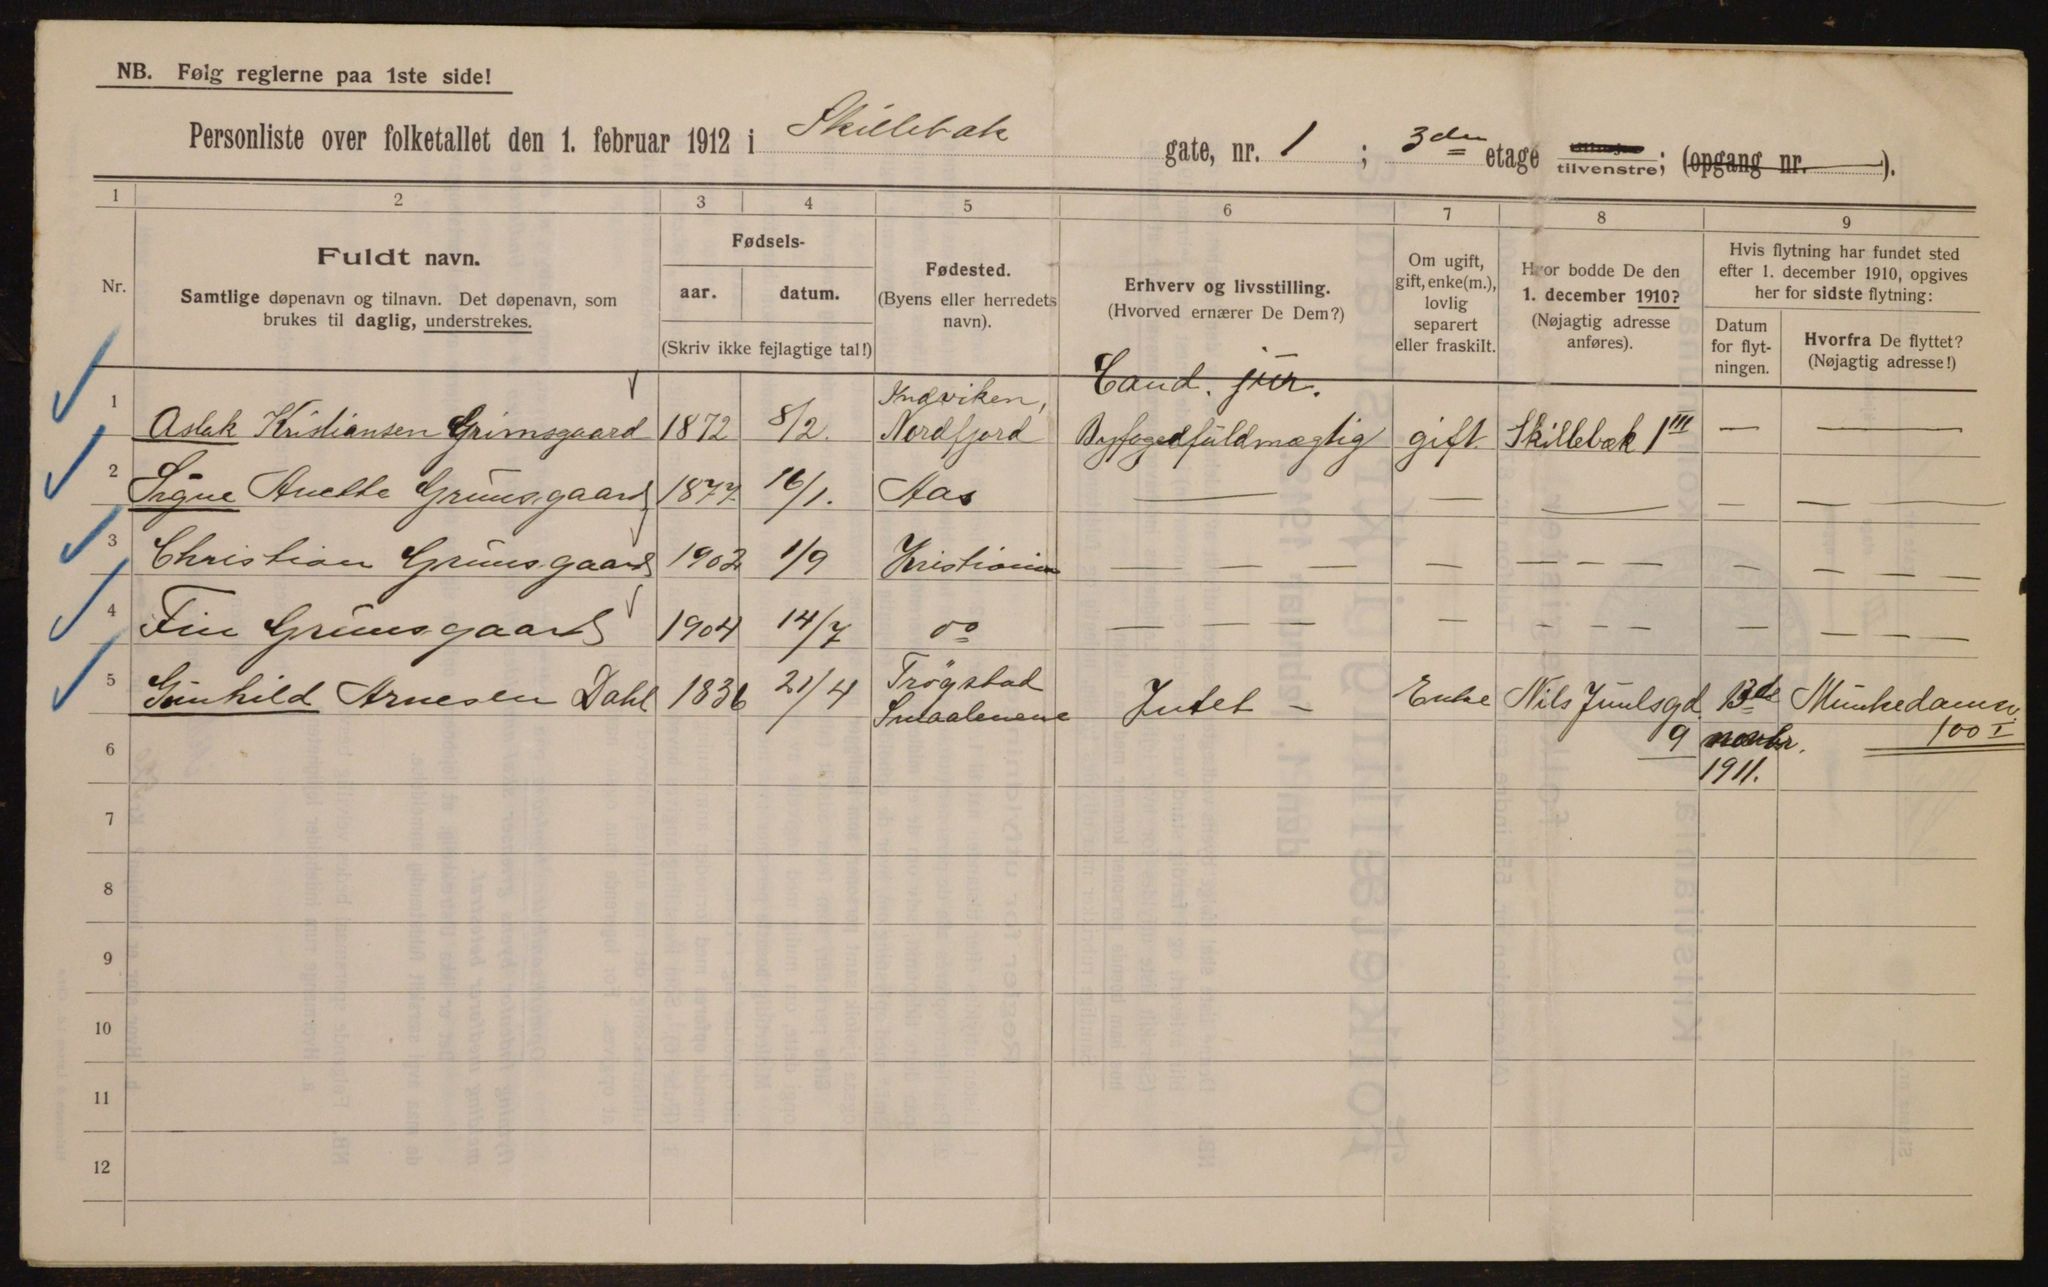 NB. Følg reglerne paa 1ste side!
Personliste over folketallet den 1. februar 1912 i Skillebæk gate, nr. 1 ; 3den etage tilvenstre; (opgang nr. ).
1 2 3 4 5 6 7 8 9
Nr.
Fuldt navn.
Samtlige døpenavn og tilnavn. Det døpenavn, som
brukes til daglig, understrekes.
Fødsels-
aar. datum.
(Skriv ikke fejlagtige tal!)
Fødested.
(Byens eller herredets
navn).
Erhverv og livsstilling.
(Hvorved ernærer De Dem?)
Om ugift,
gift, enke(m.),
lovlig
separert
eller fraskilt.
Hvor bodde De den
1. december 1910?
(Nøjagtig adresse
anføres).
Hvis flytning har fundet sted
efter 1. december 1910, opgives
her for sidste flytning:
Datum
for flyt-
ningen.
Hvorfra De flyttet?
(Nøjagtig adresse!)
Indviken, Cand. jur.
1 Aslak Kristiansen Grimsgaard 1872 8/2. Nordfjord Byfogedfuldmægtig gift. Skillebæk 1 III — —
2 Signe Anette Grimsgaard 1877 16/1. Aas — — — — — —
3 Christian Grimsgaard 1902 1/9 Kristiania — — — — — — — — — — —
4 Fin Grimsgaard 1904 14/7 do — — — — — — — — — — —
5 Gunhild Arnesen Dahl 1836 21/4 Trøgstad Intet — Enke Nils Juulsgd. 13de Munkedamsv.
Smaalenene 9 novbr. 100 I
6 1911.
7
8
9
10
11
12